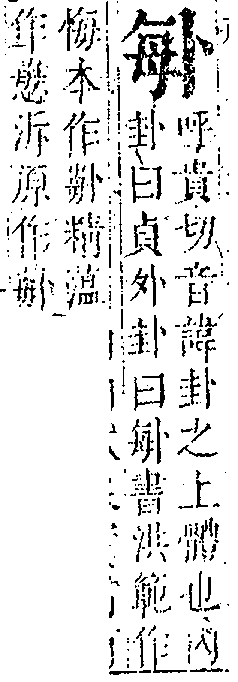 𠧩
呼貴切音諱卦之上體也內
卦曰貞外卦曰𠧩書洪範作
悔本作𠧩精薀
作泝源作